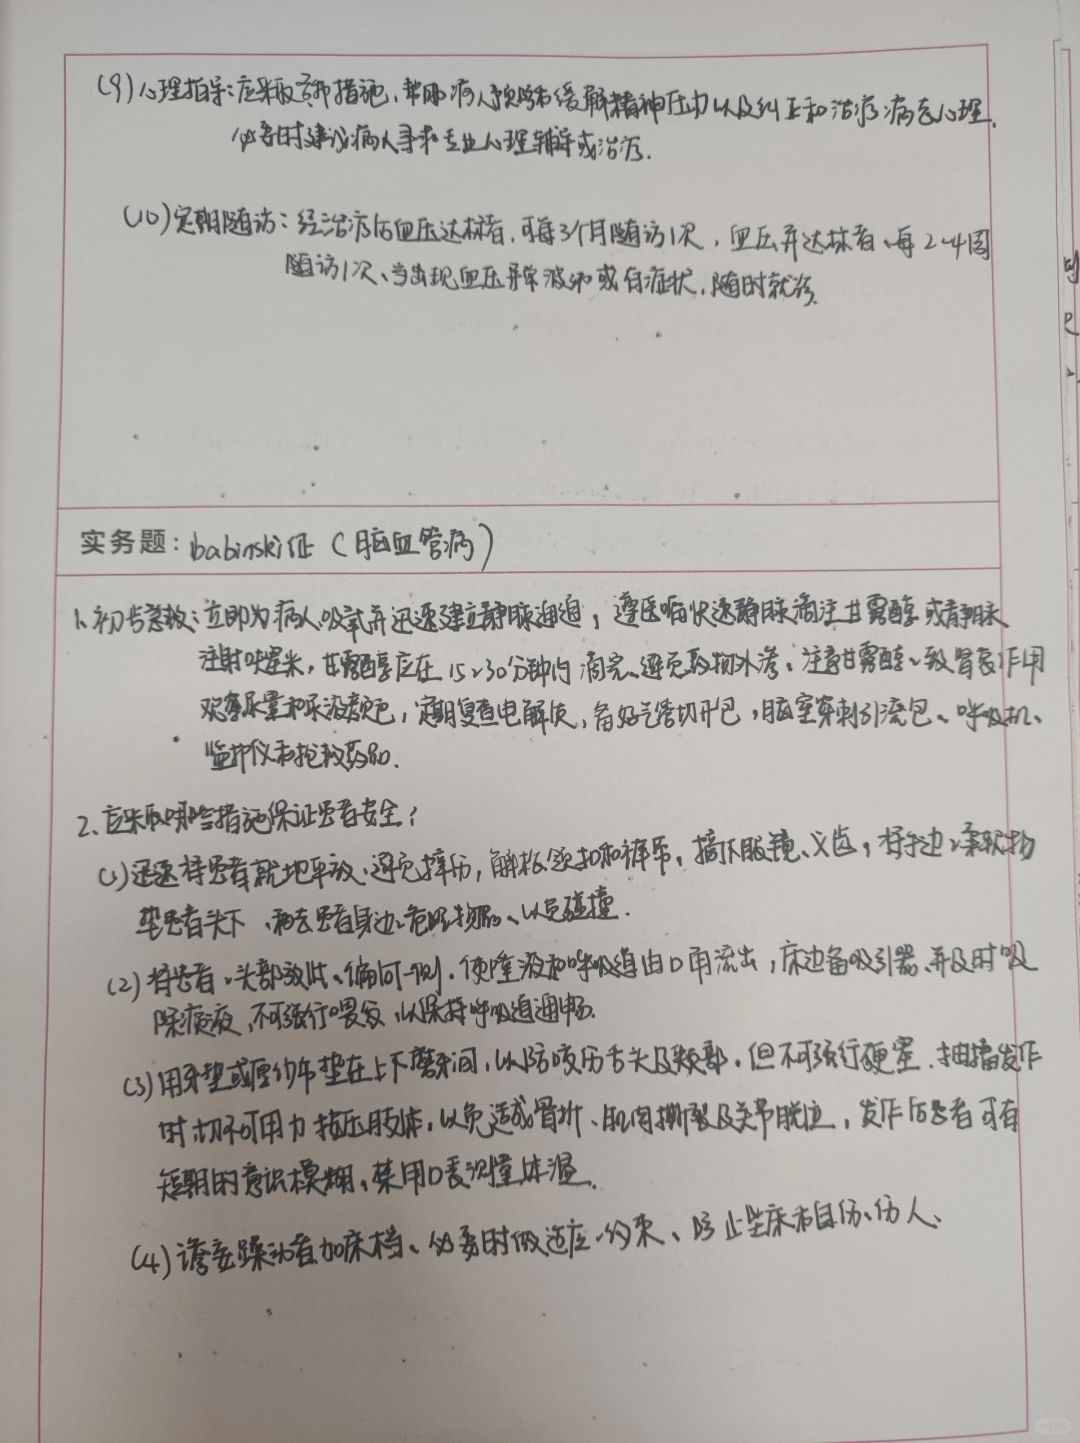 (9)心理指导:应采取各种措施,帮助病人预防和缓解精神压力以及纠正和治疗病态心理,
必要时建议病人寻求专业心理辅导或治疗.
(10)定期随访:经治疗后血压达标者,可每3个月随访1次,血压未达标者、每2~4周
随访1次、当出现血压异常波动或有症状,随时就诊.
实务题:babinski征(脑血管病)
1、初步急救:立即为病人吸氧并迅速建立静脉通道,遵医嘱快速静脉滴注甘露醇或静脉
注射呋塞米,甘露醇应在15~30分钟内滴完、避免药物外渗、注意甘露醇致肾衰作用
观察尿量和尿液颜色,定期复查电解质,备好气管切开包,脑室穿刺引流包、呼吸机、
监护仪和抢救药品.
2、应采取哪些措施保证患者安全?
(1)迅速将患者就地平放、避免摔伤,解松领扣和裤带,摘下眼镜、义齿,将手边柔软物
垫患者头下、移去患者身边危险物品、以免碰撞.
(2)将患者头部放低、偏向一侧.使唾液和呼吸道由口角流出,床边备吸引器、并及时吸
除痰液,不可强行喂食,以保持呼吸道通畅.
(3)用牙垫或厚纱布垫在上下磨牙间,以防咬伤舌头及颊部.但不可强行硬塞.抽搐发作
时切不可用力按压肢体,以免造成骨折、肌肉撕裂及关节脱位,发作后患者可有
短期的意识模糊,禁用口表测量体温.
(4)谵妄躁动者加床档、必要时做适应约束、防止坠床和自伤、伤人、